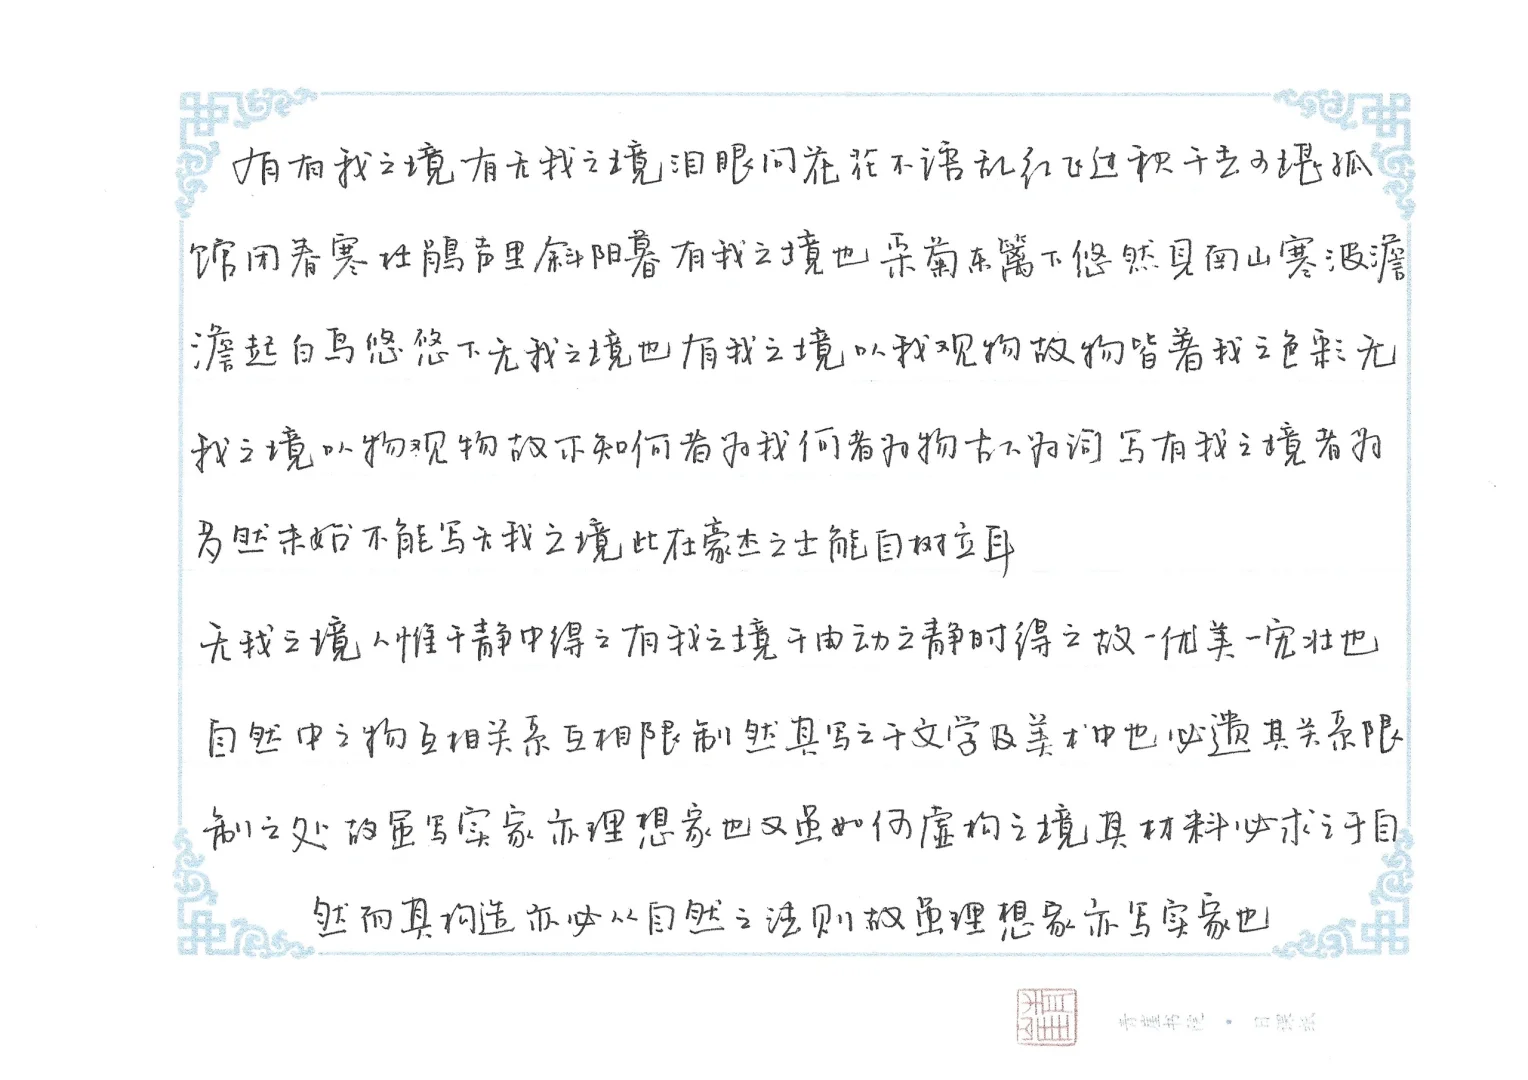 有有我之境有无我之境泪眼问花花不语乱红飞过秋千去可堪孤
馆闭春寒杜鹃声里斜阳暮有我之境也采菊东篱下悠然见南山寒波澹
澹起白鸟悠悠下无我之境也有我之境以我观物故物皆著我之色彩无
我之境以物观物故不知何者为我何者为物古人为词写有我之境者为
多然未始不能写无我之境此在豪杰之士能自树立耳
无我之境人惟于静中得之有我之境于由动之静时得之故一优美一宏壮也
自然中之物互相关系互相限制然其写之于文学及美术中也必遗其关系限
制之处故虽写实家亦理想家也又虽如何虚构之境其材料必求之于自
然而其构造亦必从自然之法则故虽理想家亦写实家也